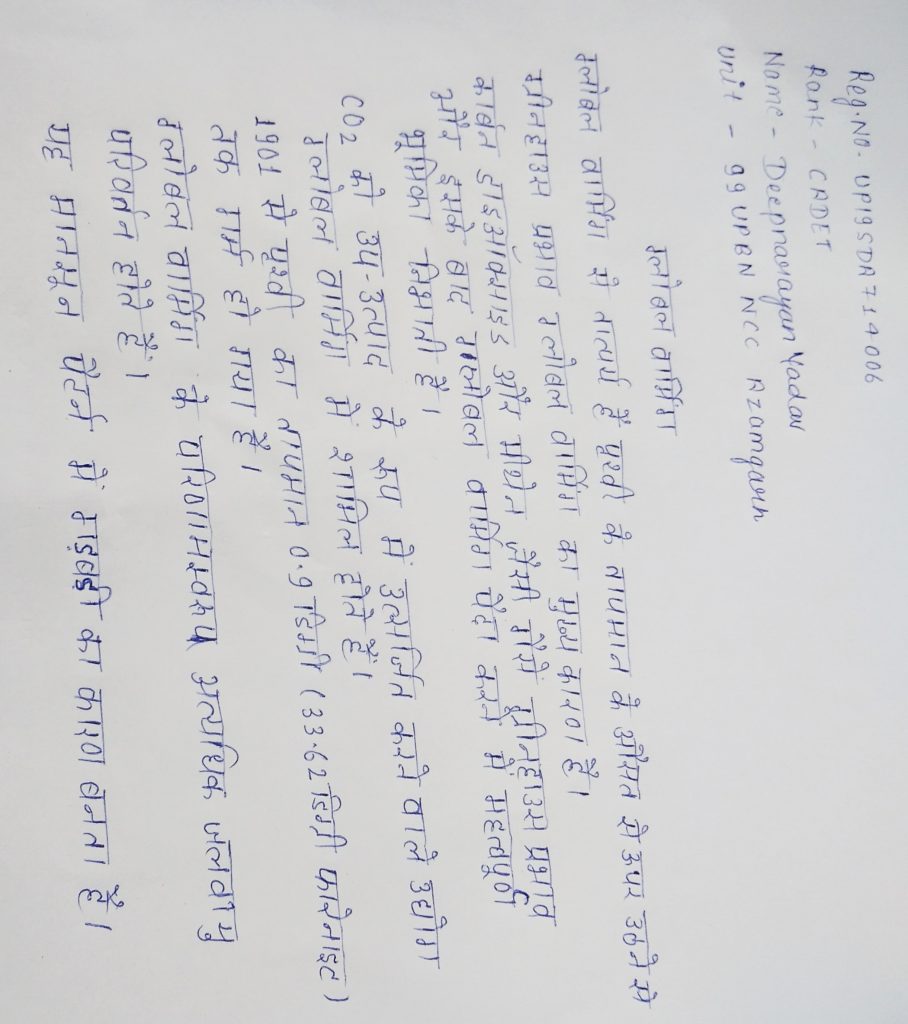 Reg.No- UP19SDA714006
Rank - CADET
Name - Deepnarayan Yadav
Unit - 99 UPBN NCC Azamgarh
ग्लोबल वार्मिंग
ग्लोबल वार्मिंग से तात्पर्य हैं पृथ्वी के तापमान के औसत से ऊपर उठने से
ग्रीनहाउस प्रभाव ग्लोबल वार्मिंग का मुख्य कारण हैं।
कार्बन डाइऑक्साइड और मीथेन जैसी गैसें ग्रीनहाउस प्रभाव
और इसके बाद ग्लोबल वार्मिंग पैदा करने में महत्वपूर्ण
भूमिका निभाती हैं।
CO2 को उप-उत्पाद के रूप में उत्सर्जित करने वाले उद्योग
ग्लोबल वार्मिंग में शामिल होते हैं।
1901 से पृथ्वी का तापमान 0.9 डिग्री (33.62 डिग्री फारेनाइट)
तक गर्म हो गया हैं।
ग्लोबल वार्मिंग के परिणामस्वरूप अत्यधिक जलवायु
परिवर्तन होते हैं।
यह मानसून पैटर्न में गड़बड़ी का कारण बनता हैं।